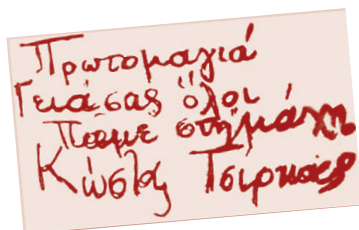 Πρωτομαγιά
Γειά σας όλοι
Πάμε στη μάχη
Κώστας Τσιρκας